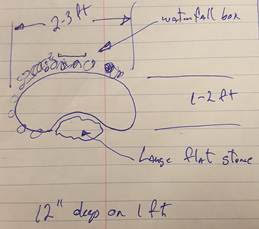 2-3 ft
waterfall box
1-2 ft
Large flat stone
12" deep on 1 ft